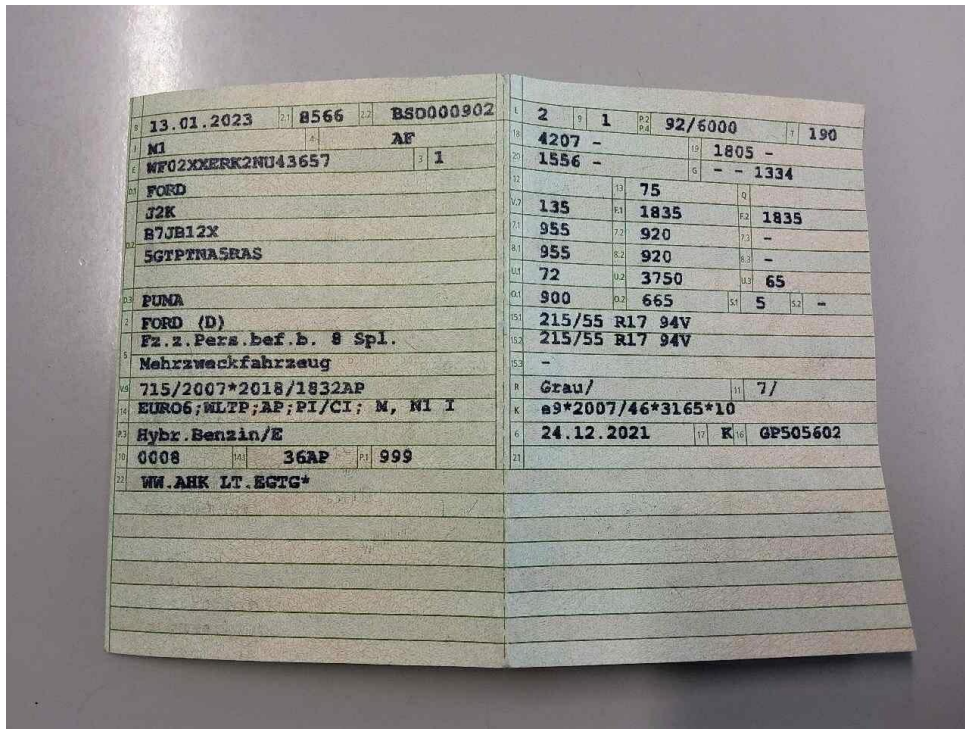 B 13.01.2023 2.1 8566 2.2 BSD000902
J M1 4 AF
E WF02XXERK2NU43657 3 1
D.1 FORD
J2K
D.2 B7JB12X
5GTPTNA5RAS
D.3 PUMA
2 FORD (D)
Fz.z.Pers.bef.b. 8 Spl.
5 Mehrzweckfahrzeug
V.9 715/2007*2018/1832AP
14 EURO6;WLTP;AP;PI/CI; M, N1 I
P.3 Hybr.Benzin/E
10 0008 14.1 36AP P.1 999
22 WW.AHK LT.EGTG*
L 2 9 1 P.2 P.4 92/6000 T 190
18 4207 - 19 1805 -
20 1556 - G - - 1334
12 13 75 Q
V.7 135 F.1 1835 F.2 1835
7.1 955 7.2 920 7.3 -
8.1 955 8.2 920 8.3 -
U.1 72 U.2 3750 U.3 65
O.1 900 O.2 665 S.1 5 S.2 -
15.1 215/55 R17 94V
15.2 215/55 R17 94V
15.3 -
R Grau/ 11 7/
K e9*2007/46*3165*10
6 24.12.2021 17 K 16 GP505602
21